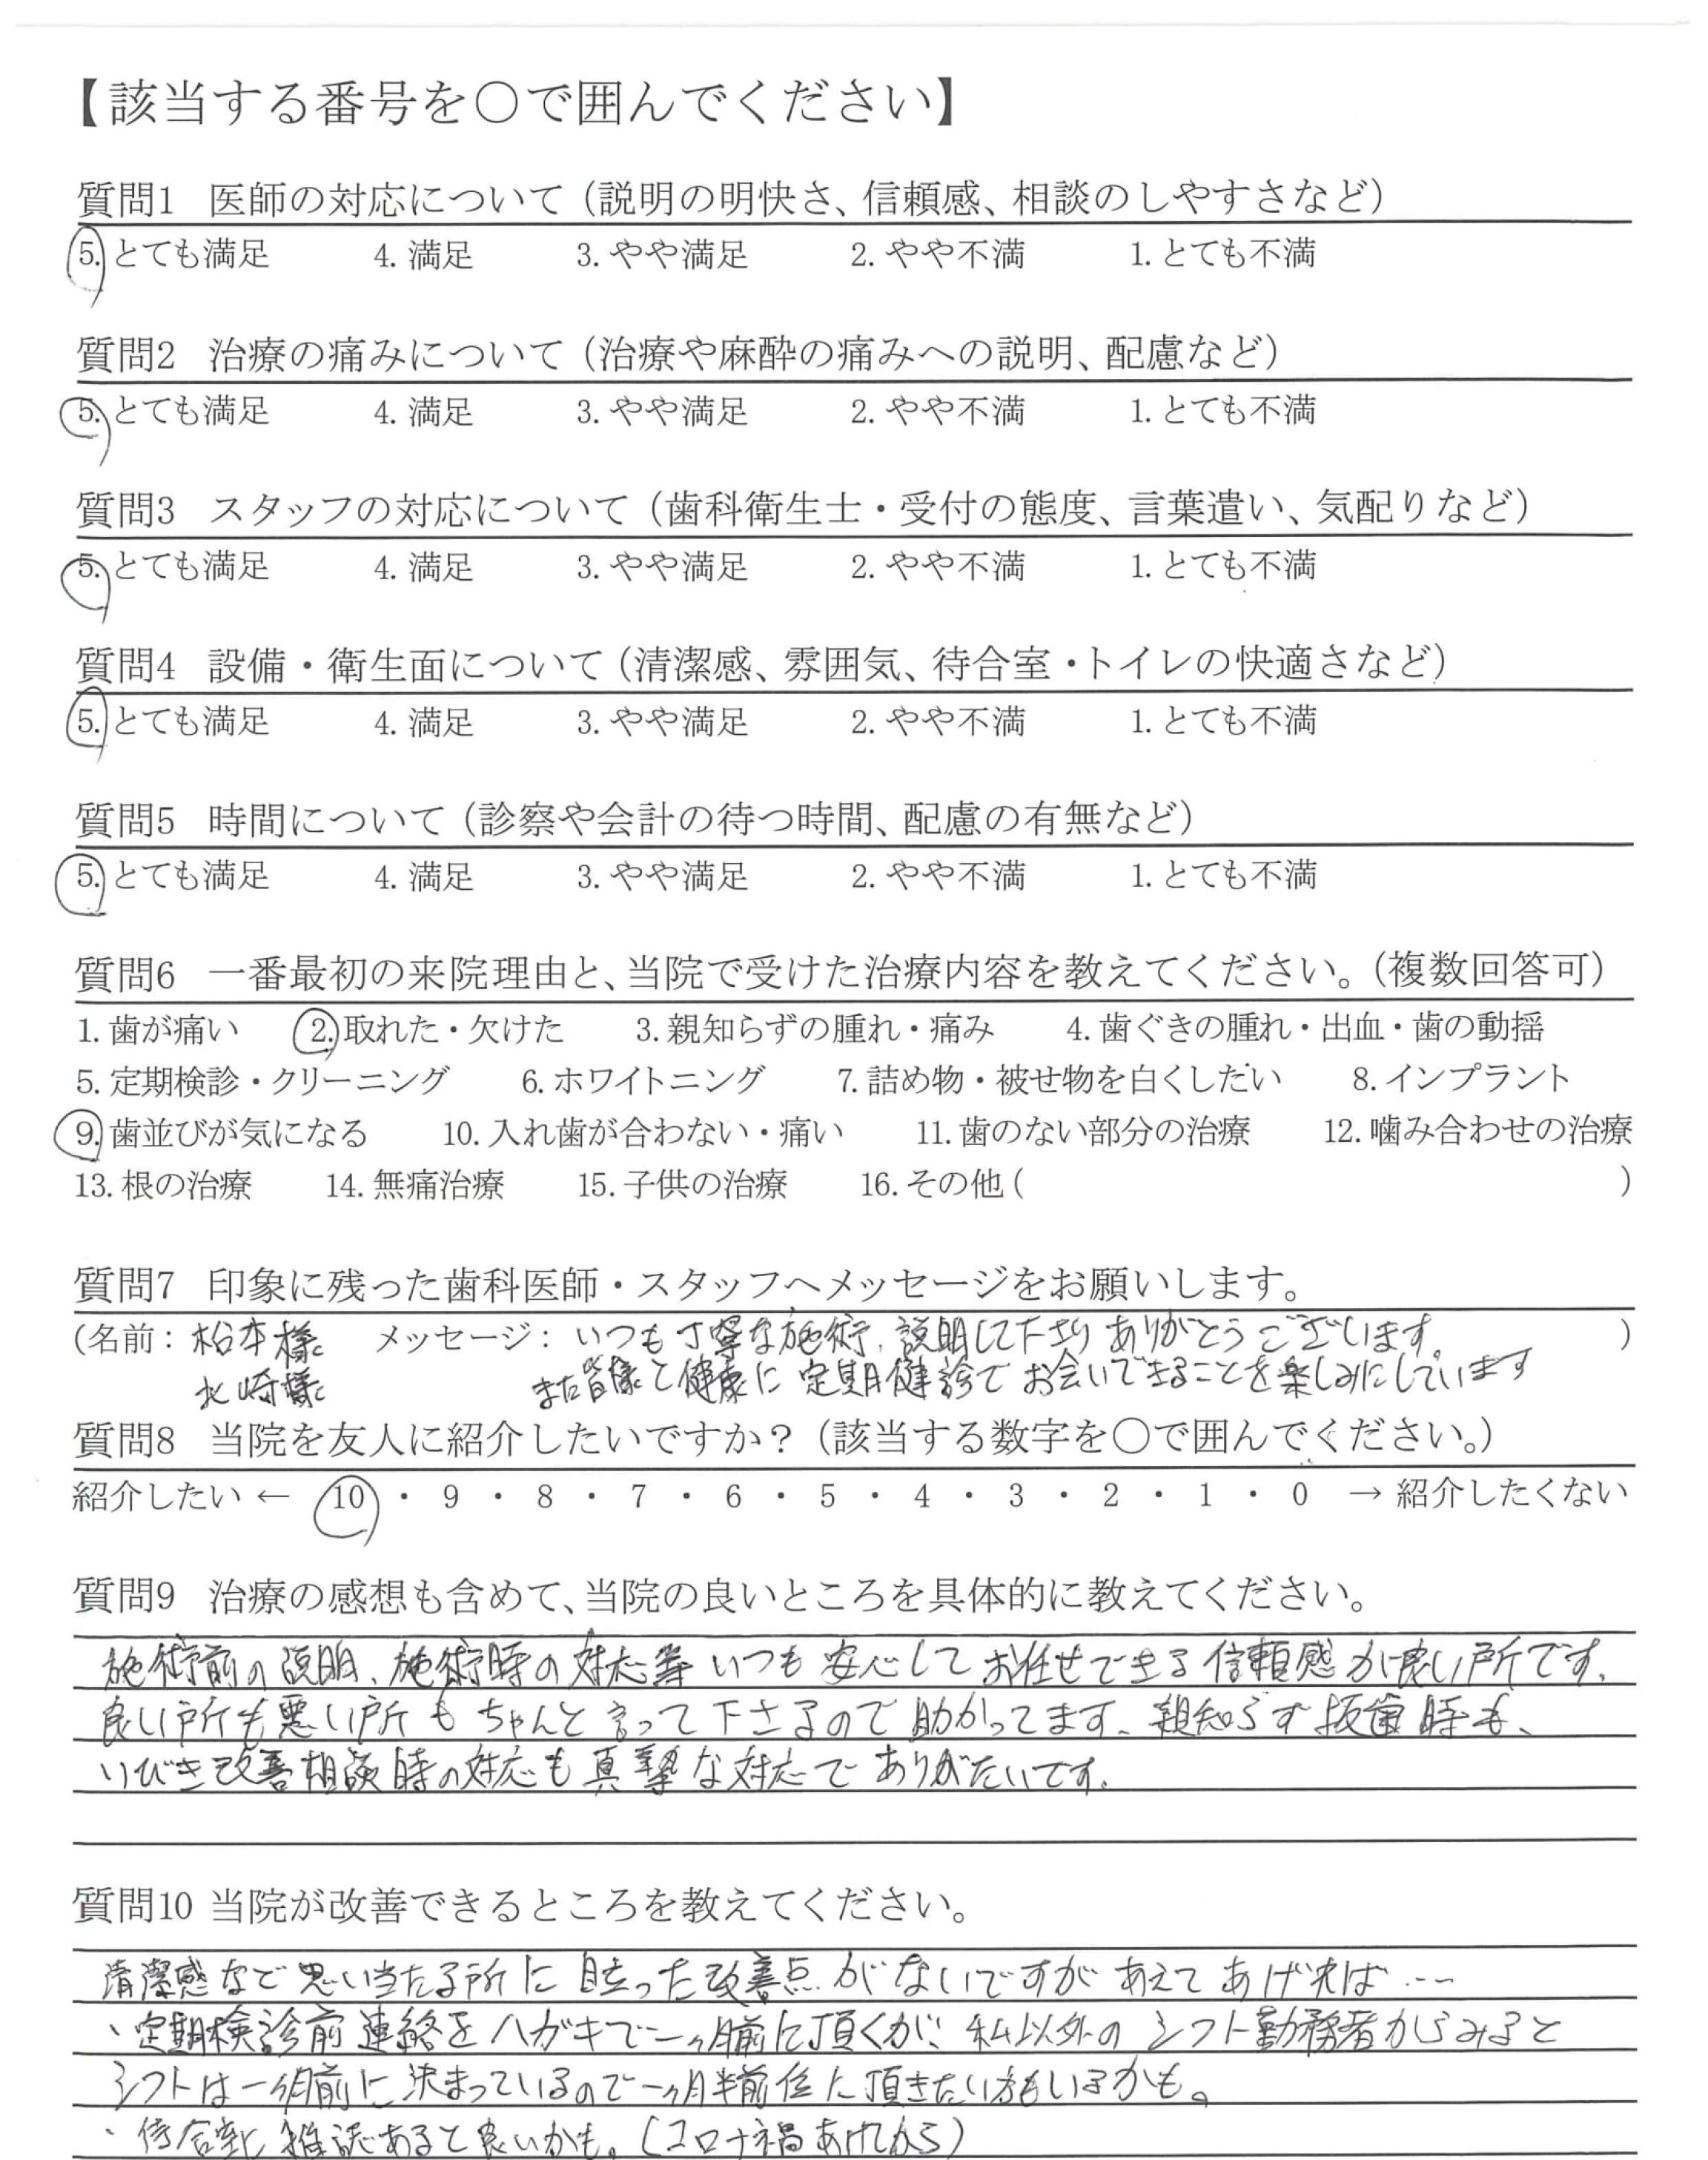 【該当する番号を〇で囲んでください】
質問1 医師の対応について（説明の明快さ、信頼感、相談のしやすさなど）
5. とても満足 4. 満足 3. やや満足 2. やや不満 1. とても不満
質問2 治療の痛みについて（治療や麻酔の痛みへの説明、配慮など）
5. とても満足 4. 満足 3. やや満足 2. やや不満 1. とても不満
質問3 スタッフの対応について（歯科衛生士・受付の態度、言葉遣い、気配りなど）
5. とても満足 4. 満足 3. やや満足 2. やや不満 1. とても不満
質問4 設備・衛生面について（清潔感、雰囲気、待合室・トイレの快適さなど）
5. とても満足 4. 満足 3. やや満足 2. やや不満 1. とても不満
質問5 時間について（診察や会計の待つ時間、配慮の有無など）
5. とても満足 4. 満足 3. やや満足 2. やや不満 1. とても不満
質問6 一番最初の来院理由と、当院で受けた治療内容を教えてください。（複数回答可）
1. 歯が痛い 2. 取れた・欠けた 3. 親知らずの腫れ・痛み 4. 歯ぐきの腫れ・出血・歯の動揺
5. 定期検診・クリーニング 6. ホワイトニング 7. 詰め物・被せ物を白くしたい 8. インプラント
9. 歯並びが気になる 10. 入れ歯が合わない・痛い 11. 歯のない部分の治療 12. 噛み合わせの治療
13. 根の治療 14. 無痛治療 15. 子供の治療 16. その他（ ）
質問7 印象に残った歯科医師・スタッフへメッセージをお願いします。
（名前：松本様 メッセージ：いつも丁寧な施術、説明して下さり ありがとうございます。）
北崎様 また皆様と健康に定期健診でお会いできることを楽しみにしています
質問8 当院を友人に紹介したいですか？（該当する数字を〇で囲んでください。）
紹介したい ← 10 ・ 9 ・ 8 ・ 7 ・ 6 ・ 5 ・ 4 ・ 3 ・ 2 ・ 1 ・ 0 → 紹介したくない
質問9 治療の感想も含めて、当院の良いところを具体的に教えてください。
施術前の説明、施術時の対応等 いつも安心してお任せできる信頼感が良い所です。
良い所も悪い所もちゃんと言って下さるので助かってます。親知らず抜歯時も、
いびき改善相談時の対応も真摯な対応でありがたいです。
質問10 当院が改善できるところを教えてください。
清潔感など思い当たる所に目立った改善点がないですが あえてあげれば…
・定期検診前連絡をハガキで一ヶ月前に頂くが、私以外のシフト勤務者からみると
シフトは一ヶ月前に決まっているので一ヶ月半前位に頂きたい方もいるかも。
・待合室に雑誌あると良いかも。（コロナ禍あけたから）